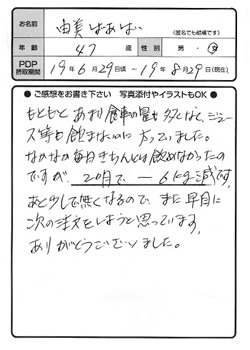 お名前 由美ばあば (匿名でも結構です)
年齢 47 歳 性別 男・女
PDP摂取期間 19年6月29日頃 ~ 19年8月29日(現在)
●ご感想をお書き下さい 写真添付やイラストもOK●
もともと あまり食事の量も多くはなく、ジュース
等も飲まないのに太っていました。
なかなか毎日きちんとは飲めなかったの
ですが 2ヶ月で 一6kg減です。
あと少しで無くなるので、また早目に
次の注文をしようと思っています。
ありがとうございました。